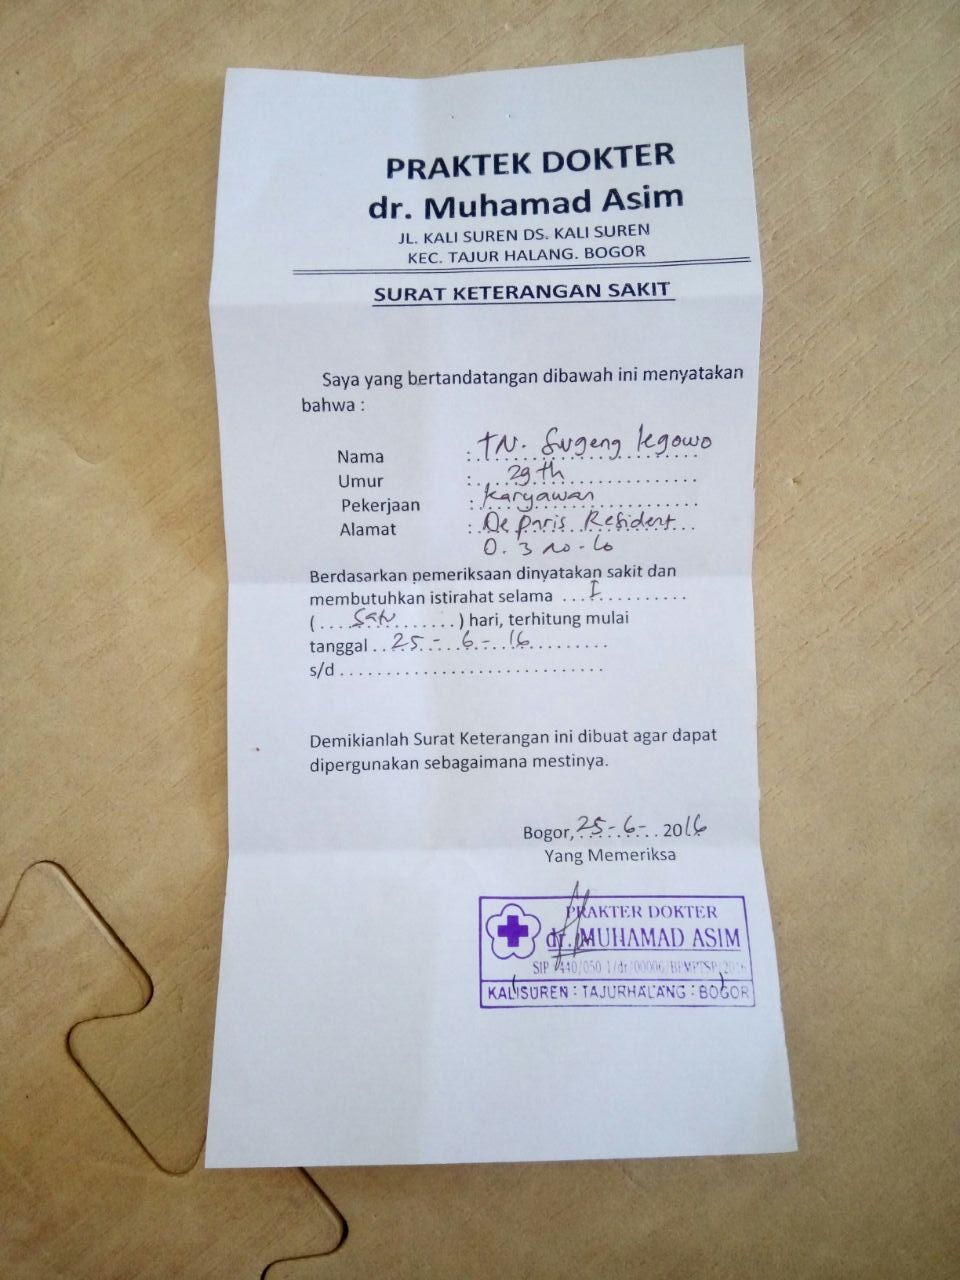 PRAKTEK DOKTER
dr. Muhamad Asim
JL. KALI SUREN DS. KALI SUREN
KEC. TAJUR HALANG. BOGOR
SURAT KETERANGAN SAKIT
Saya yang bertandatangan dibawah ini menyatakan
bahwa :
Nama : TN. Sugeng legowo
Umur : 29 th
Pekerjaan : Karyawan
Alamat : De Paris Resident
O. 3 no - 10
Berdasarkan pemeriksaan dinyatakan sakit dan
membutuhkan istirahat selama ...I..........
(....Satu.......) hari, terhitung mulai
tanggal ..25-6-16..........
s/d ............................
Demikianlah Surat Keterangan ini dibuat agar dapat
dipergunakan sebagaimana mestinya.
Bogor, 25-6-2016
Yang Memeriksa
PRAKTER DOKTER
dr. MUHAMAD ASIM
SIP 440/050 1/dr/00006/BPMPTSP/2016
KALISUREN : TAJURHALANG : BOGOR